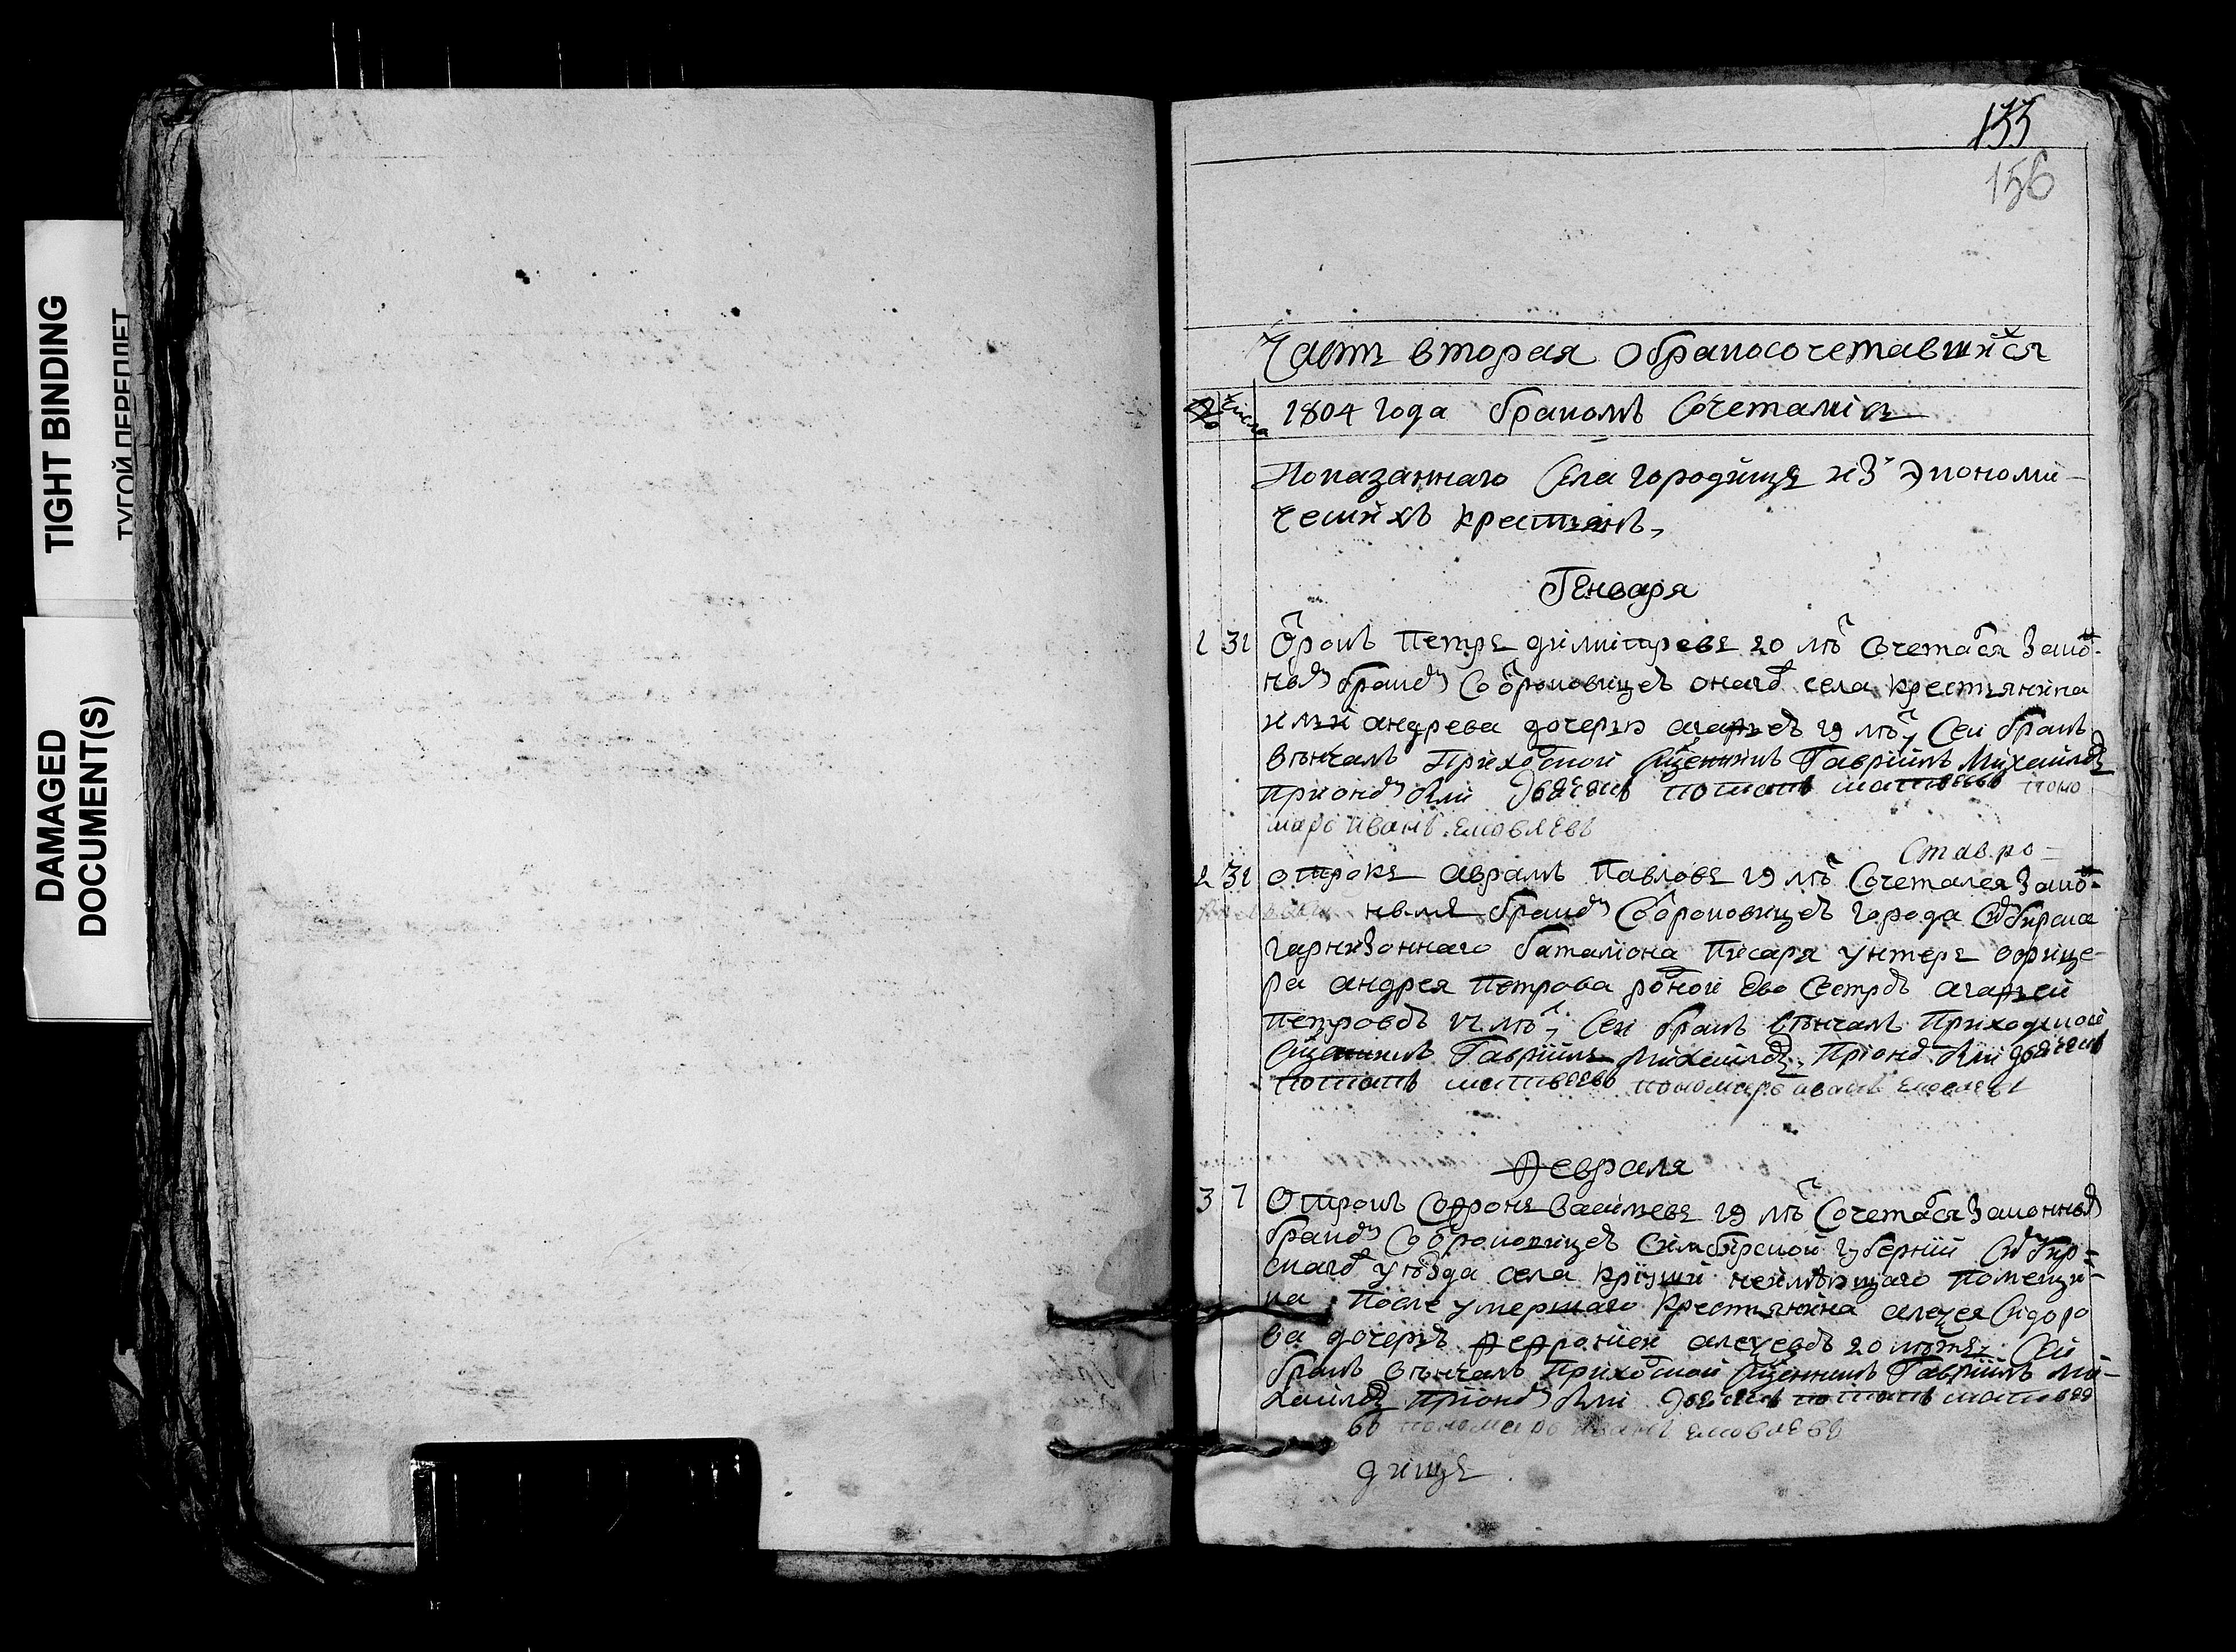 TIGHT BINDING
ТУГОЙ ПЕРЕПЛЕТ
DAMAGED
DOCUMENT(S)
155
156
Часть вторая о бракосочетавшихся
№ числа 1804 года браком сочеталися
Показаннаго села городища из Экономи-
ческих крестьянъ,
Генваря
1 31 Отрокъ Петръ димитревъ 20 лѣт сочетался закон-
нымъ бракомъ со отроковицеѣ онаго села крестьянина
андрева дочерью агафьеѣ 19 лѣт, Сеи бракъ
вѣнчалъ приходской священникъ Гавріилъ Михаиловъ
при ономъ были дьячекъ потапъ матвеевъ поно
марь иванъ яковлевъ
Ставро-
2 31 отрокъ аврамъ Павловъ 19 лѣт Сочетался закон-
нымъ бракомъ со отроковицеѣ города
гарнизоннаго баталиона Писаря унтеръ офице-
ра андрея Петрова родной ево сестрѣ агафьеи
петровѣ 17 лѣт, Сеи бракъ вѣнчалъ приходской
священникъ Гавріилъ Михаиловъ, при ономъ были дьячекъ
потапъ матвеевъ пономарь иванъ яковлевъ
Февраля
3 7 Отрокъ Софронъ Васильевъ 19 лѣт Сочетался законнымъ
бракомъ со отроковицеѣ Симбирской губернии
скаго уѣзда села неимѣющаго помещи-
ка после умершаго крестьянина алеѯея Сидоро
ва дочерью феѳрониеи алеѯевѣ 20 лѣтъ, Сеи
бракъ вѣнчалъ приходской священникъ Гавріилъ Ми-
хаиловъ при ономъ были дьячекъ потапъ матвее
въ пономарь иванъ яковлевъ
дище